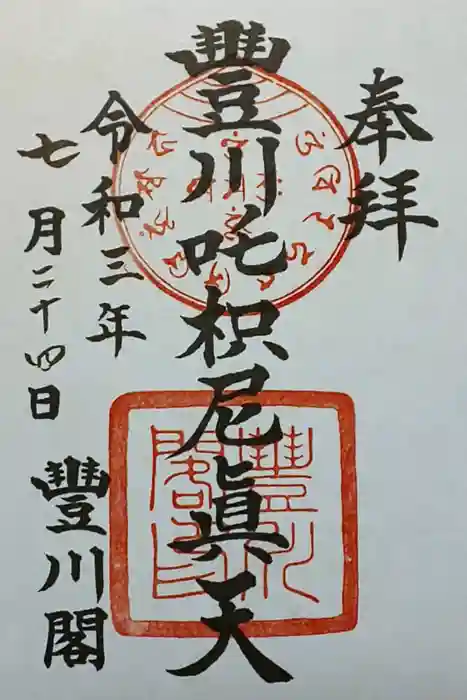 奉拝
豐川吒枳尼眞天
令和三年
七月二十四日
豐川閣
豐川閣印